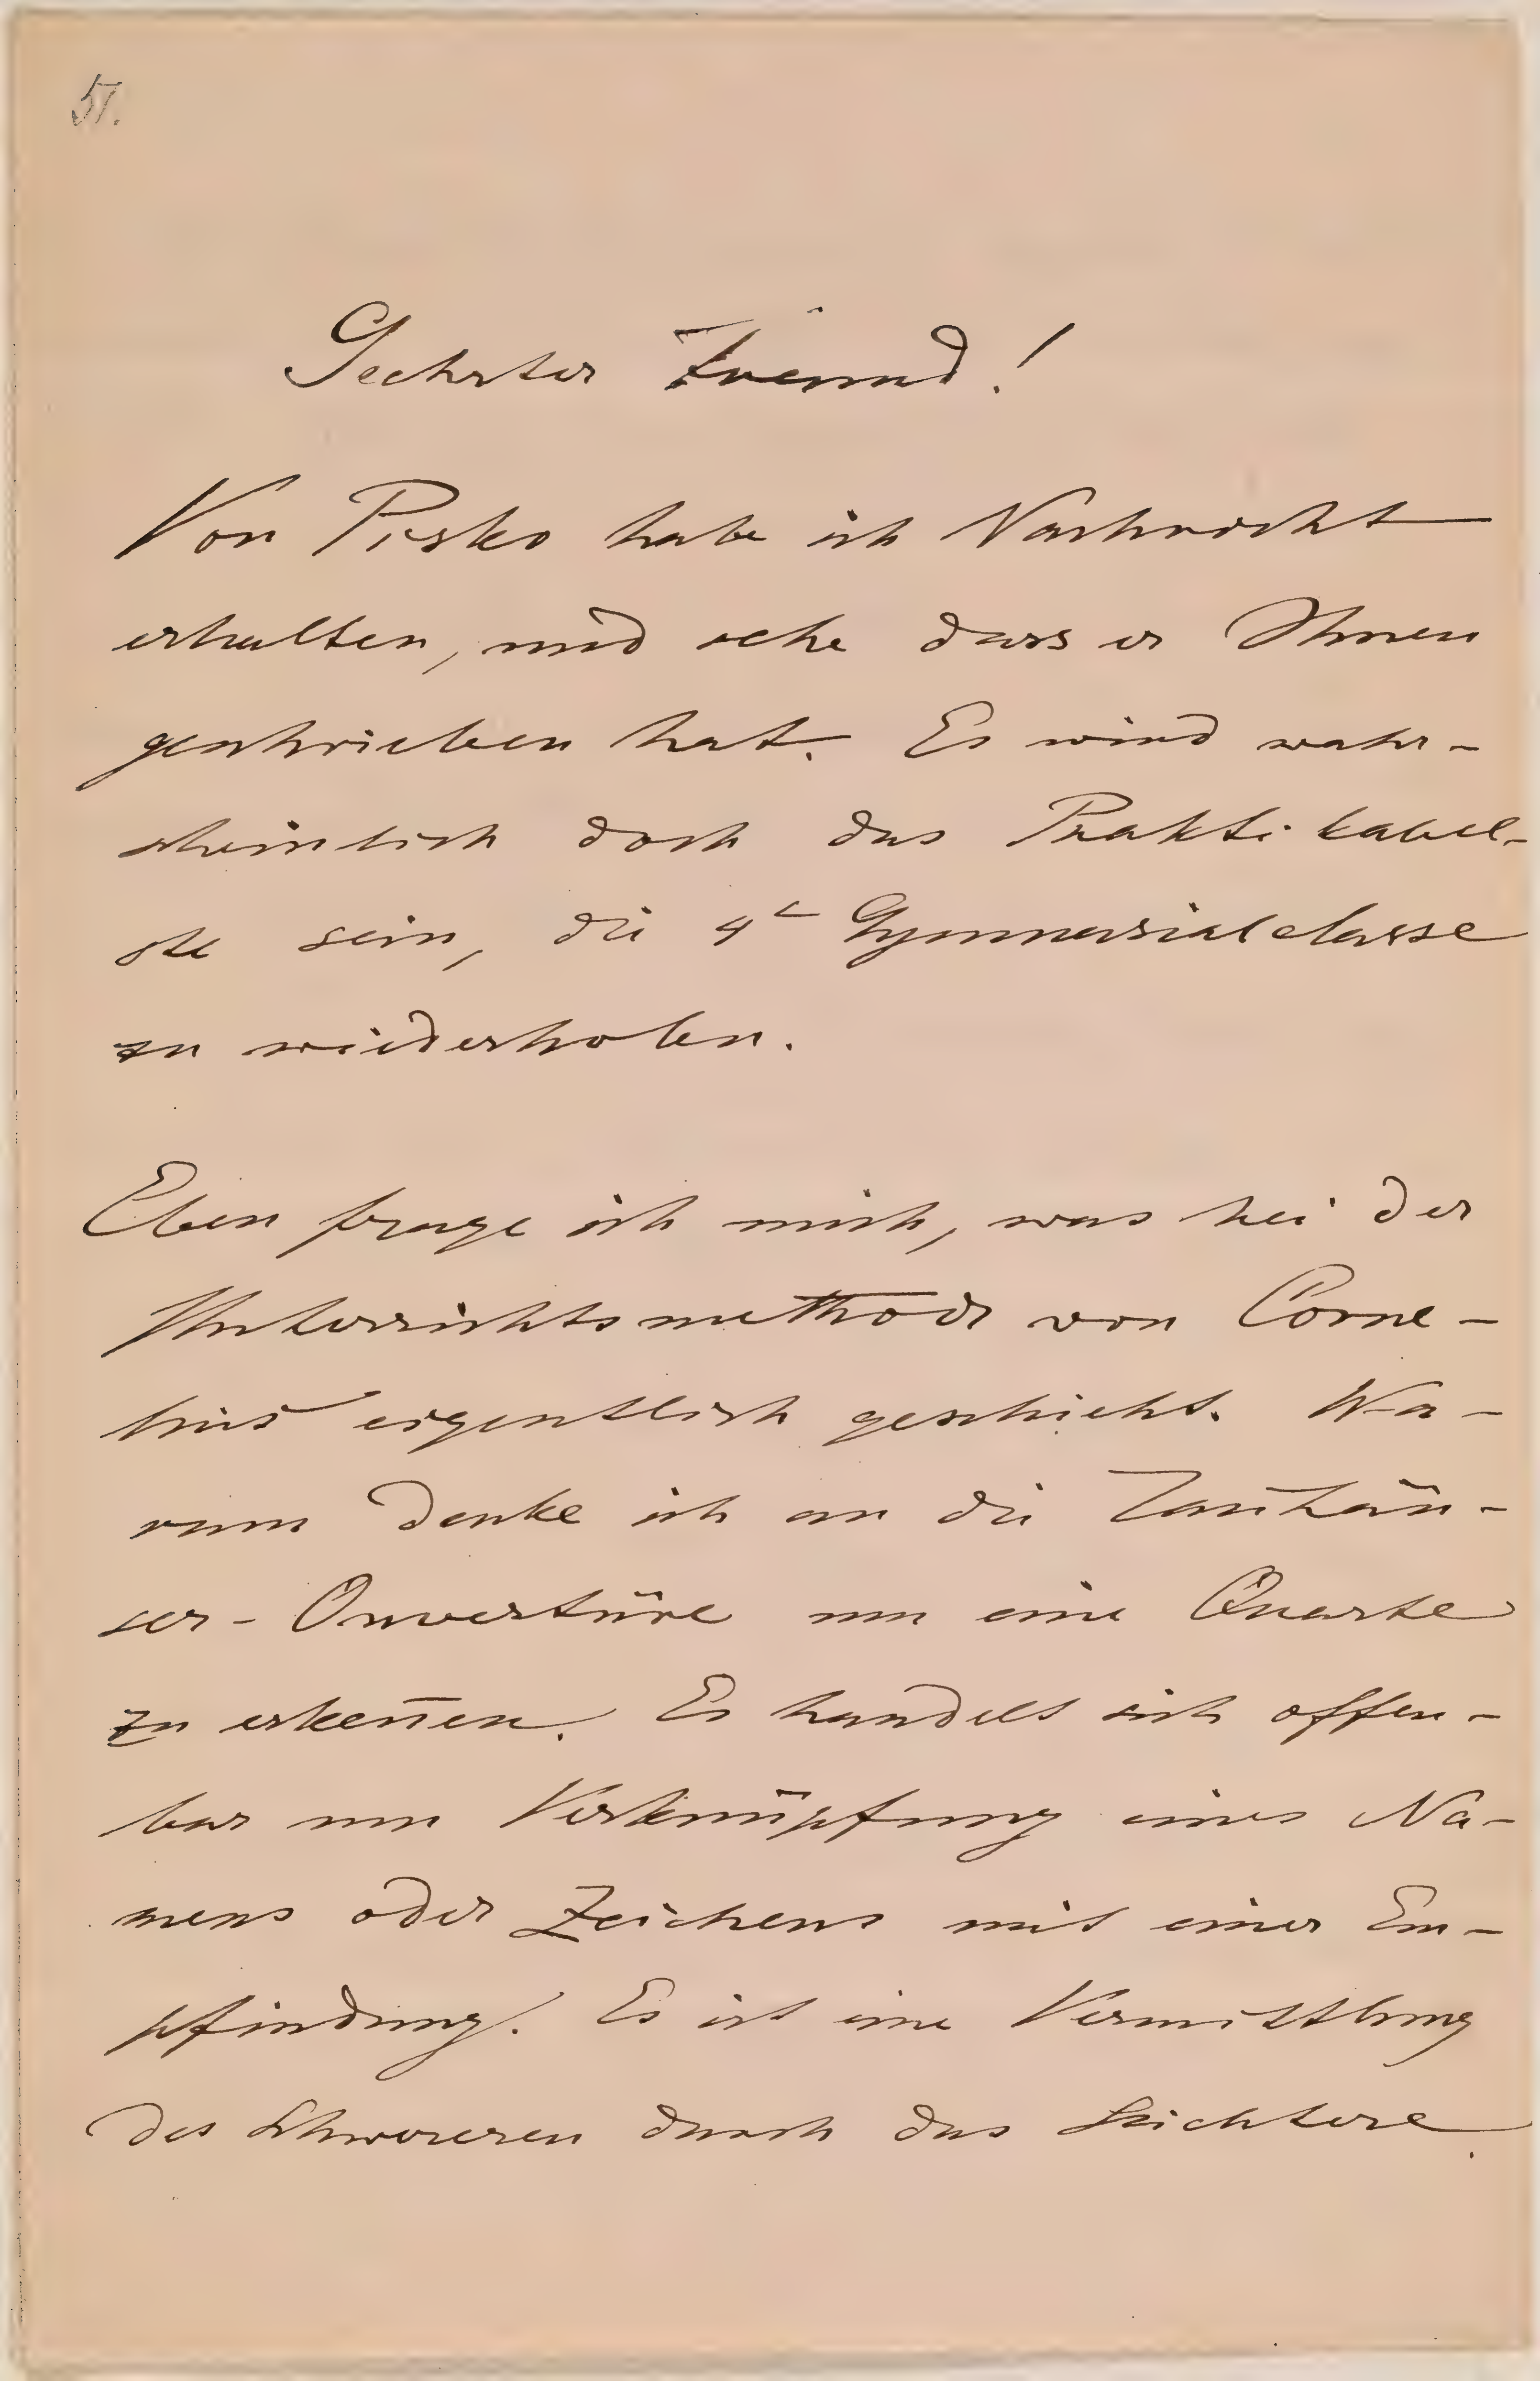 51.
Geehrter Freund!
Von Pisko habe ich Nachricht
erhalten, und sehe dass er Ihnen
geschrieben hat. Es wird wahr-
scheinlich doch das Praktikabel-
ste sein, die 4te Gymnasialclasse
zu wiederholen.
Eben frage ich mich, was bei der
Unterrichtsmethode von Corne-
lius eigentlich geschieht. Wa-
rum denke ich an die Tanhäu-
ser-Ouvertüre um eine Quarte
zu erkennen. Es handelt sich offen-
bar um Verknüpfung eines Na-
mens oder Zeichens mit einer Em-
pfindung. Es ist eine Vermittlung
des Schwereren durch das Leichtere.